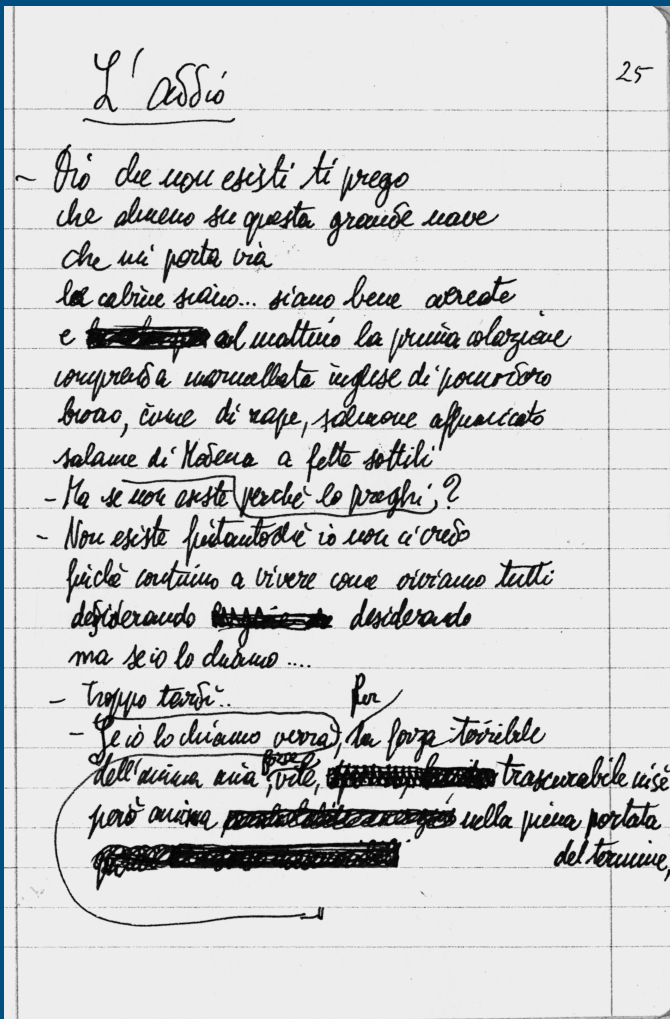 L'addio
25
- Dio che non esisti ti prego
che almeno su questa grande nave
che mi porta via
le cabine siano... siano bene aereate
e al mattino la prima colazione
comprenda marmellata inglese di pomodoro
broao, cime di rape, salmone affumicato
salame di Modena a fette sottili
- Ma se non esiste perché lo preghi,?
- Non esiste fintantoché io non ci credo
finché continuo a vivere come viviamo tutti
desiderando desiderando
ma se io lo chiamo....
- Troppo tardi..
Per
- Se io lo chiamo verrà, la forza terribile
forse
dell'anima mia, vile, trascurabile in sé
però anima nella piena portata
del termine,